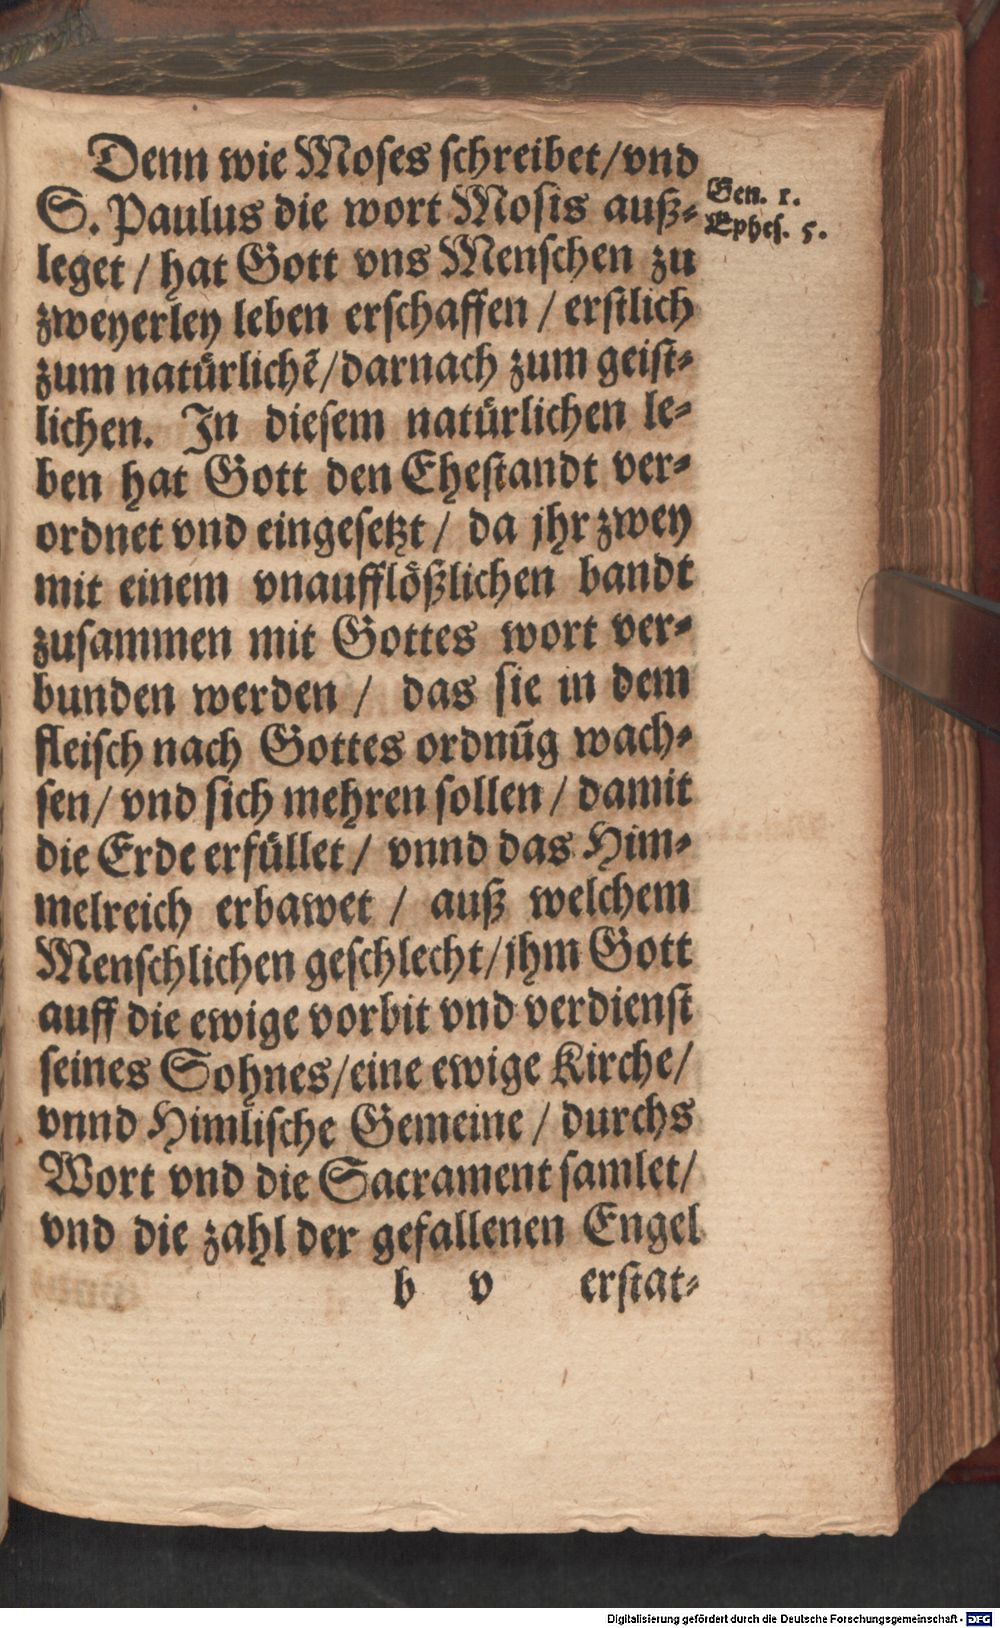 Denn wie Moses schreibet/vnd
S. Paulus die wort Mosis auß-
leget/ hat Gott vns Menschen zu
zweyerley leben erschaffen/ erstlich
zum natürlichẽ/darnach zum geist-
lichen. In diesem natürlichen le-
ben hat Gott den Ehestandt ver-
ordnet vnd eingesetzt/ da jhr zwey
mit einem vnaufflößlichen bandt
zusammen mit Gottes wort ver-
bunden werden/ das sie in dem
fleisch nach Gottes ordnũg wach-
sen/ vnd sich mehren sollen/ damit
die Erde erfüllet/ vnnd das Him-
melreich erbawet/ auß welchem
Menschlichen geschlecht/jhm Gott
auff die ewige vorbit vnd verdienst
seines Sohnes/eine ewige Kirche/
vnnd Himlische Gemeine/ durchs
Wort vnd die Sacrament samlet/
vnd die zahl der gefallenen Engel
b v erstat-
Gen. 1.
Ephes. 5.
Digitalisierung gefördert durch die Deutsche Forschungsgemeinschaft - DFG